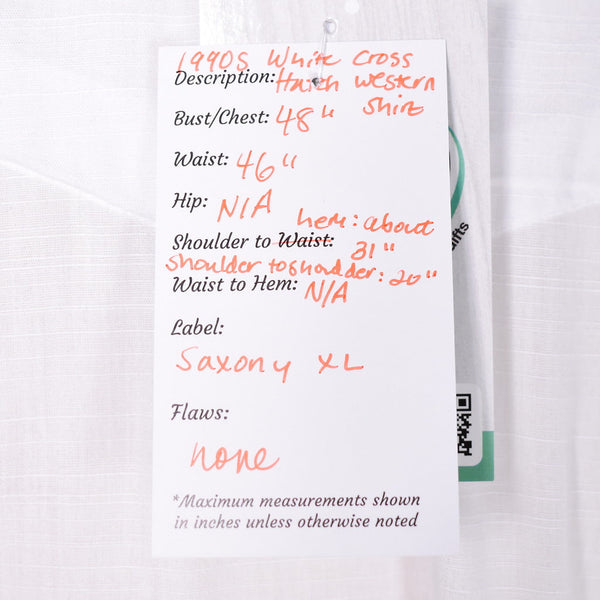 1990s White Cross
Description: Hatch Western
Shirt
Bust/Chest: 48"
Waist: 46"
Hip: N/A
hem: about
Shoulder to Waist: 31"
Shoulder to shoulder: 20"
Waist to Hem: N/A
Label:
Saxony XL
Flaws:
none
*Maximum measurements shown
in inches unless otherwise noted